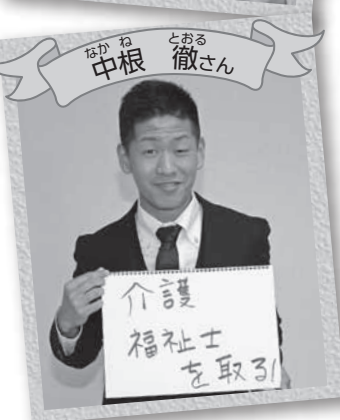 なか ね とおる
中根 徹さん
介護
福祉士
を取る!